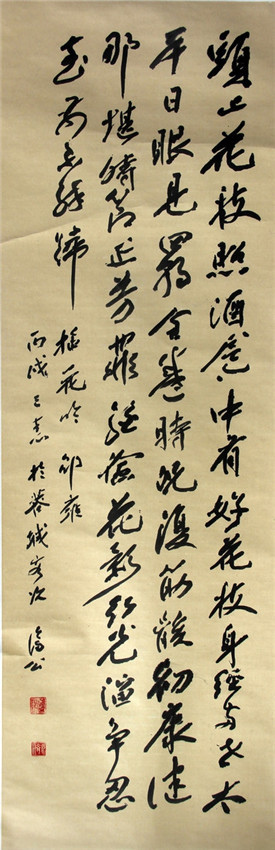 頭上花枝照酒卮中有好花枝身經兩世太
平日眼見四朝全盛時況復筋骸粗康健
那堪時節正芳菲酒涵花影紅光溜爭忍
花前不醉歸
插花吟 邵雍
丙戌 於蓉城客次